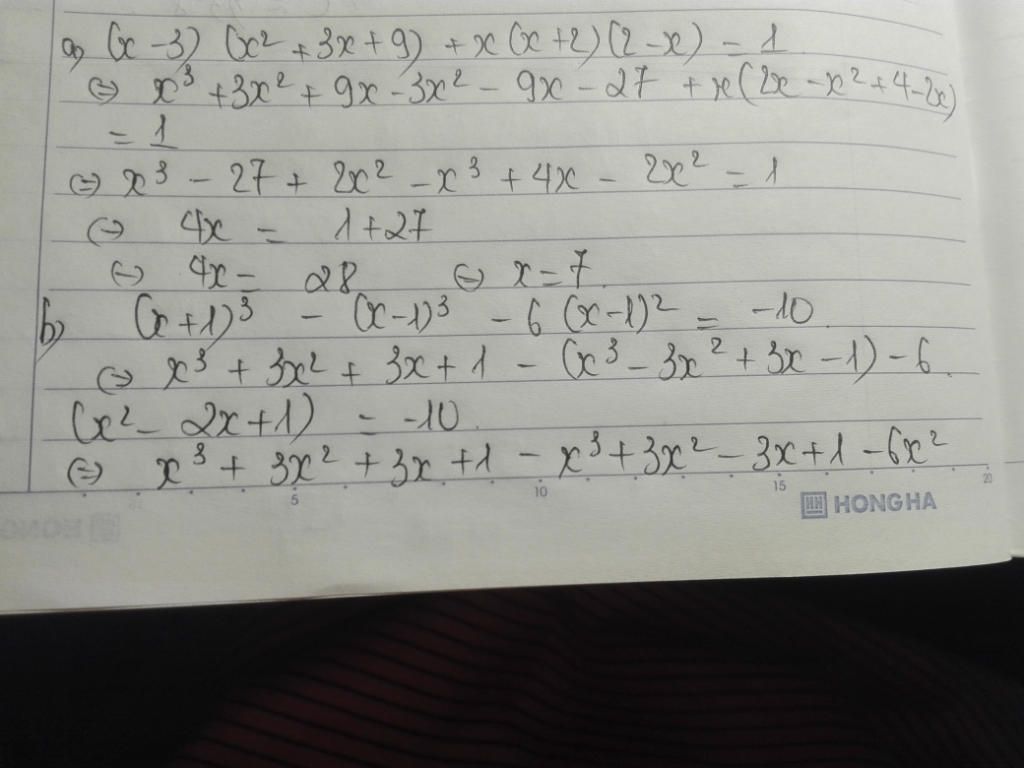 a) (x - 3) (x² + 3x + 9) + x (x + 2) (2 - x) = 1
⇔ x³ + 3x² + 9x - 3x² - 9x - 27 + x (2x - x² + 4 - 2x)
= 1
⇔ x³ - 27 + 2x² - x³ + 4x - 2x² = 1
⇔ 4x = 1 + 27
⇔ 4x = 28 ⇔ x = 7.
b) (x + 1)³ - (x - 1)³ - 6 (x - 1)² = -10.
⇔ x³ + 3x² + 3x + 1 - (x³ - 3x² + 3x - 1) - 6.
(x² - 2x + 1) = -10.
⇔ x³ + 3x² + 3x + 1 - x³ + 3x² - 3x + 1 - 6x²
5 10 15 20
HONG HA